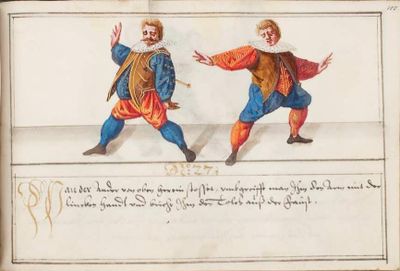 No: 27.
Wan der Ander von oben herein stosset, vnd greifft man Ihm den Arm mit der
lincken Handt vnd bricht Ihm den Tolch auß der Faust.